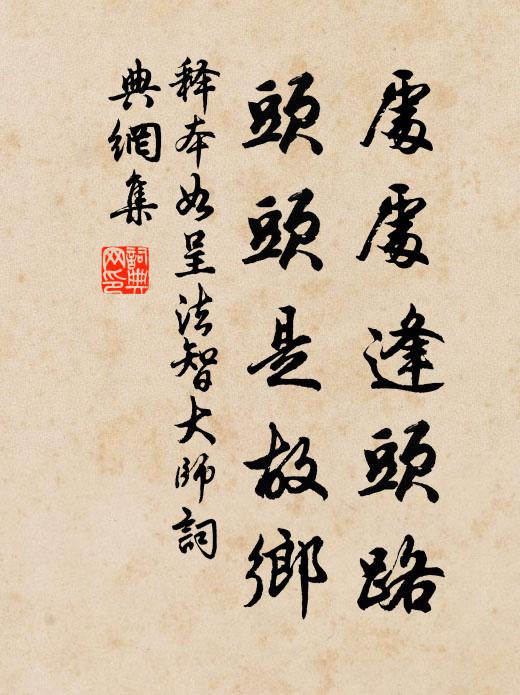 處處逢頭路
頭頭是故鄉
释本如呈法智大師詞
典網集
詞典
网印